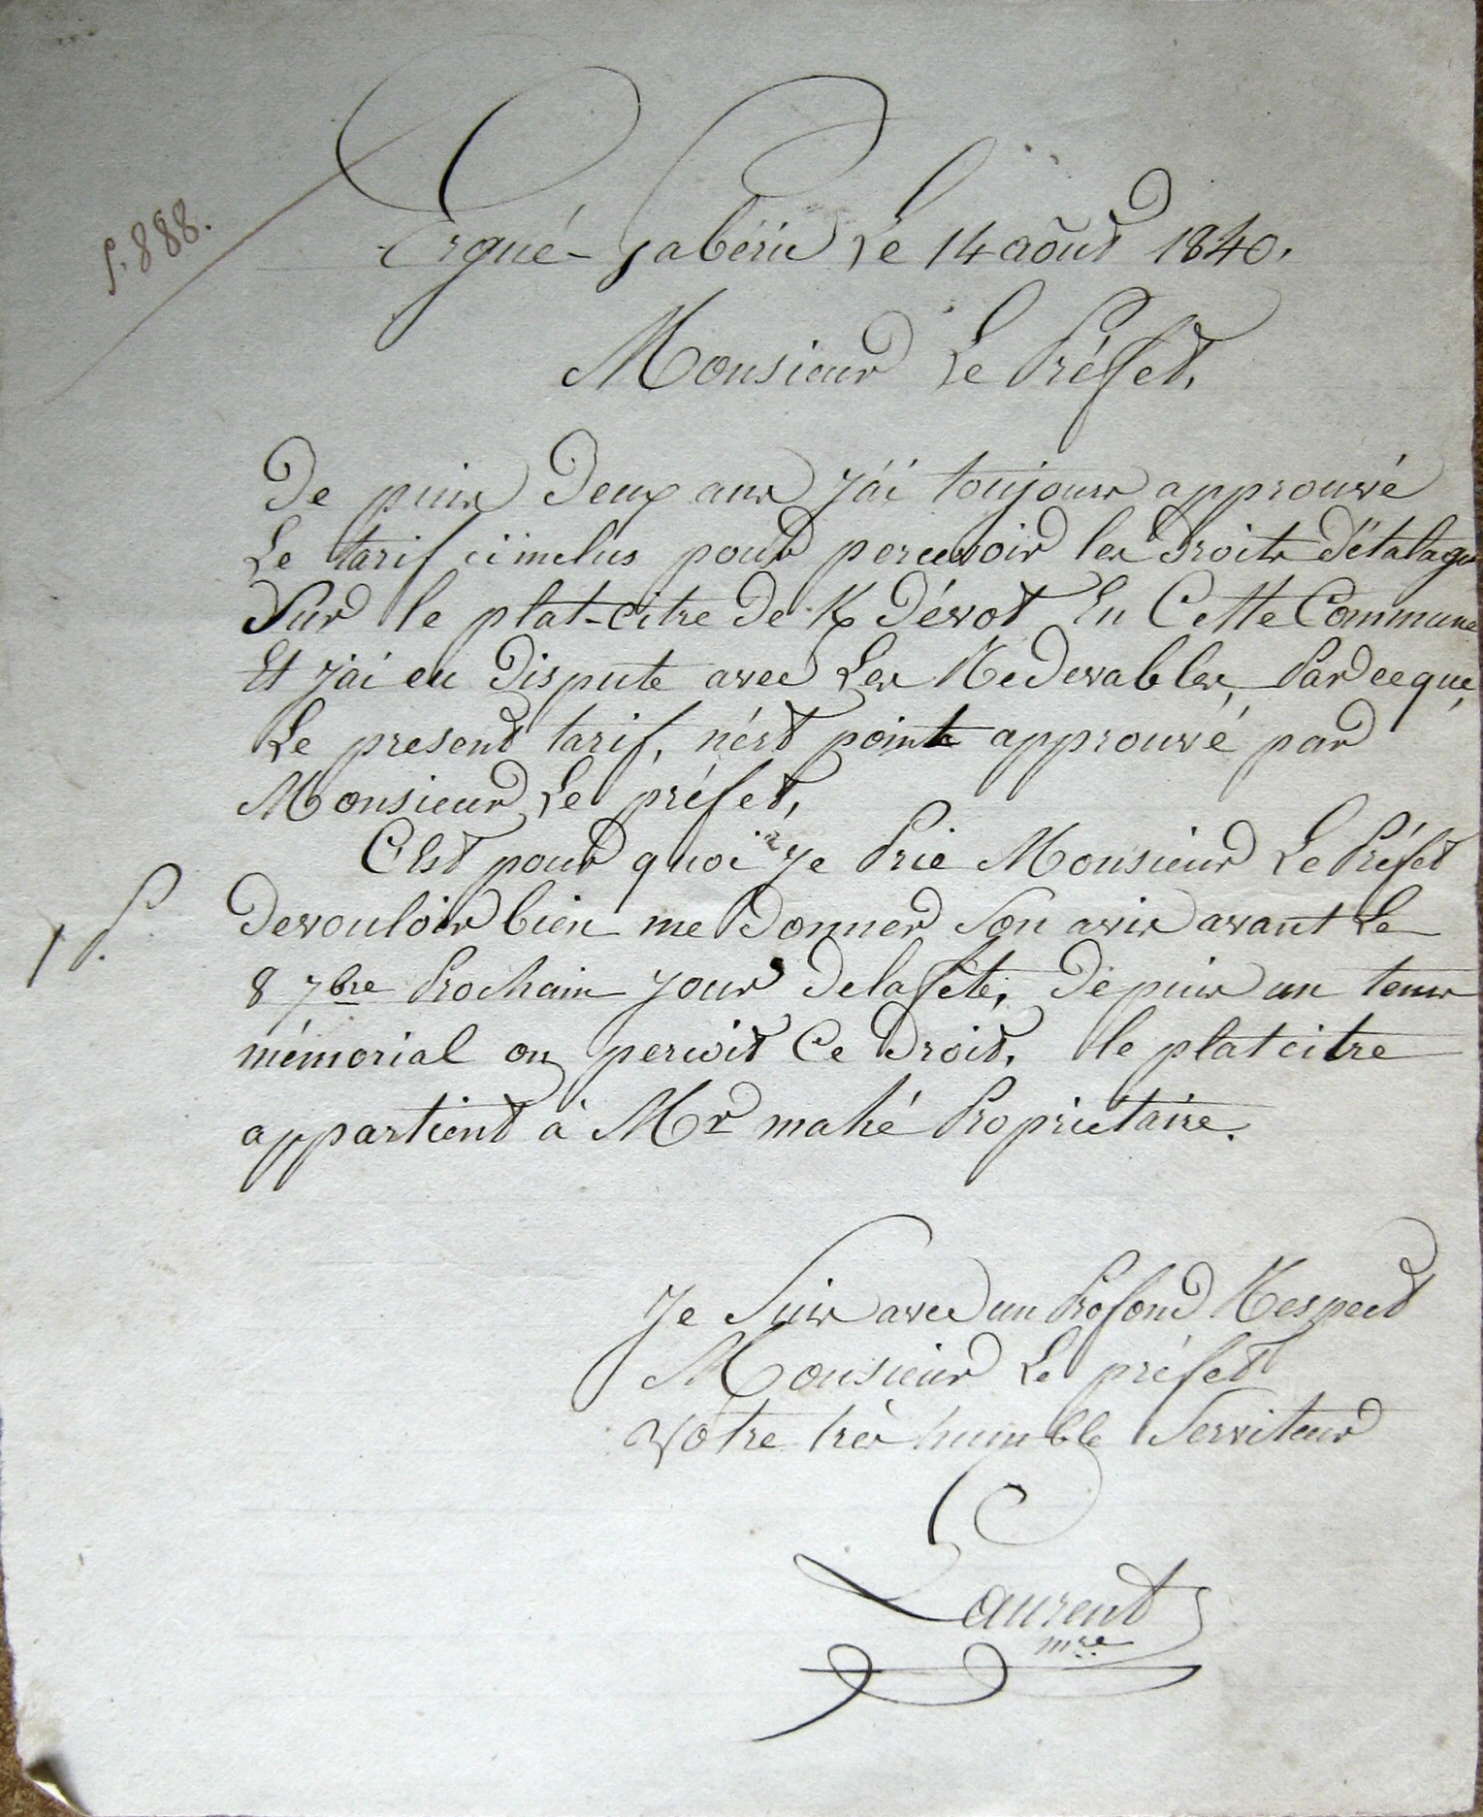 S. 888.
Ergué-Gabéric Le 14 août 1840.
Monsieur Le Préfet,
De puis Deux ans j'ai toujours approuvé
Le tarif ci inclus pour percevoir les Droits d'étalage
Sur le plat-citre de K/ Dévot En Cette Commune
Et j'ai eu Dispute avec Les Redevables, Parceque,
Le present tarif, n'ést point approuvé par
Monsieur Le préfet,
C'Est pour quoi je Prie Monsieur Le Préfet
De vouloir bien me Donner Son avis avant Le
8 7bre Prochain jour De la fête, De puis un tems
mémorial on percoit Ce Droit, le plat citre
appartient à Mr mahé Propriétaire.
Je Suis avec un Profond Respect
Monsieur Le préfet
Votre très humble Serviteur
Laurent
mre